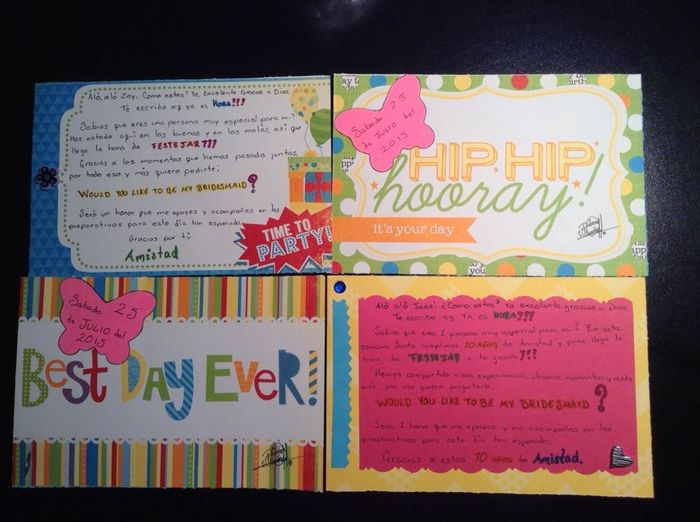 Aló, aló Zay, Como estas? Yo, Excelente Gracias a Dios
Te escribo xq ya es HORA!!!
Sabias que eres una persona muy especial para mi?
Haz estado aquí en las buenas y en las malas, así que
llego la hora de FESTEJAR!!!
Gracias x los momentos que hemos pasado juntas,
por todo eso y más quiero pedirte:
WOULD YOU LIKE TO BE MY BRIDESMAID?
Será un honor que me apoyes y acompañes en los
preparativos para este día tan esperado.
Gracias por tú
Amistad
TIME TO
PARTY!
Sabado 25
de JULIO del
2015
HIP HIP
hooray!
it's your day
Sabado 25
de JULIO del
2015
BEST DAY EVER!
Aló aló Jess: ¿Como estas? Yo excelente gracias a Dios
Te escribo xq ya es HORA!!!
Sabias que eres 1 persona muy especial para mi? En esta
semana Santa cumplimos 10 AÑOS de Amistad y pues llego la
hora de FESTEJAR a lo grande!!!
Hemos compartido risas, experiencias, chismes, momentos y mucho
más, por eso quiero preguntarte:
WOULD YOU LIKE TO BE MY BRIDESMAID?
Será 1 honor que me apoyes y me acompañes en los
preparativos para este día tan esperado.
Gracias x estos 10 años de Amistad.